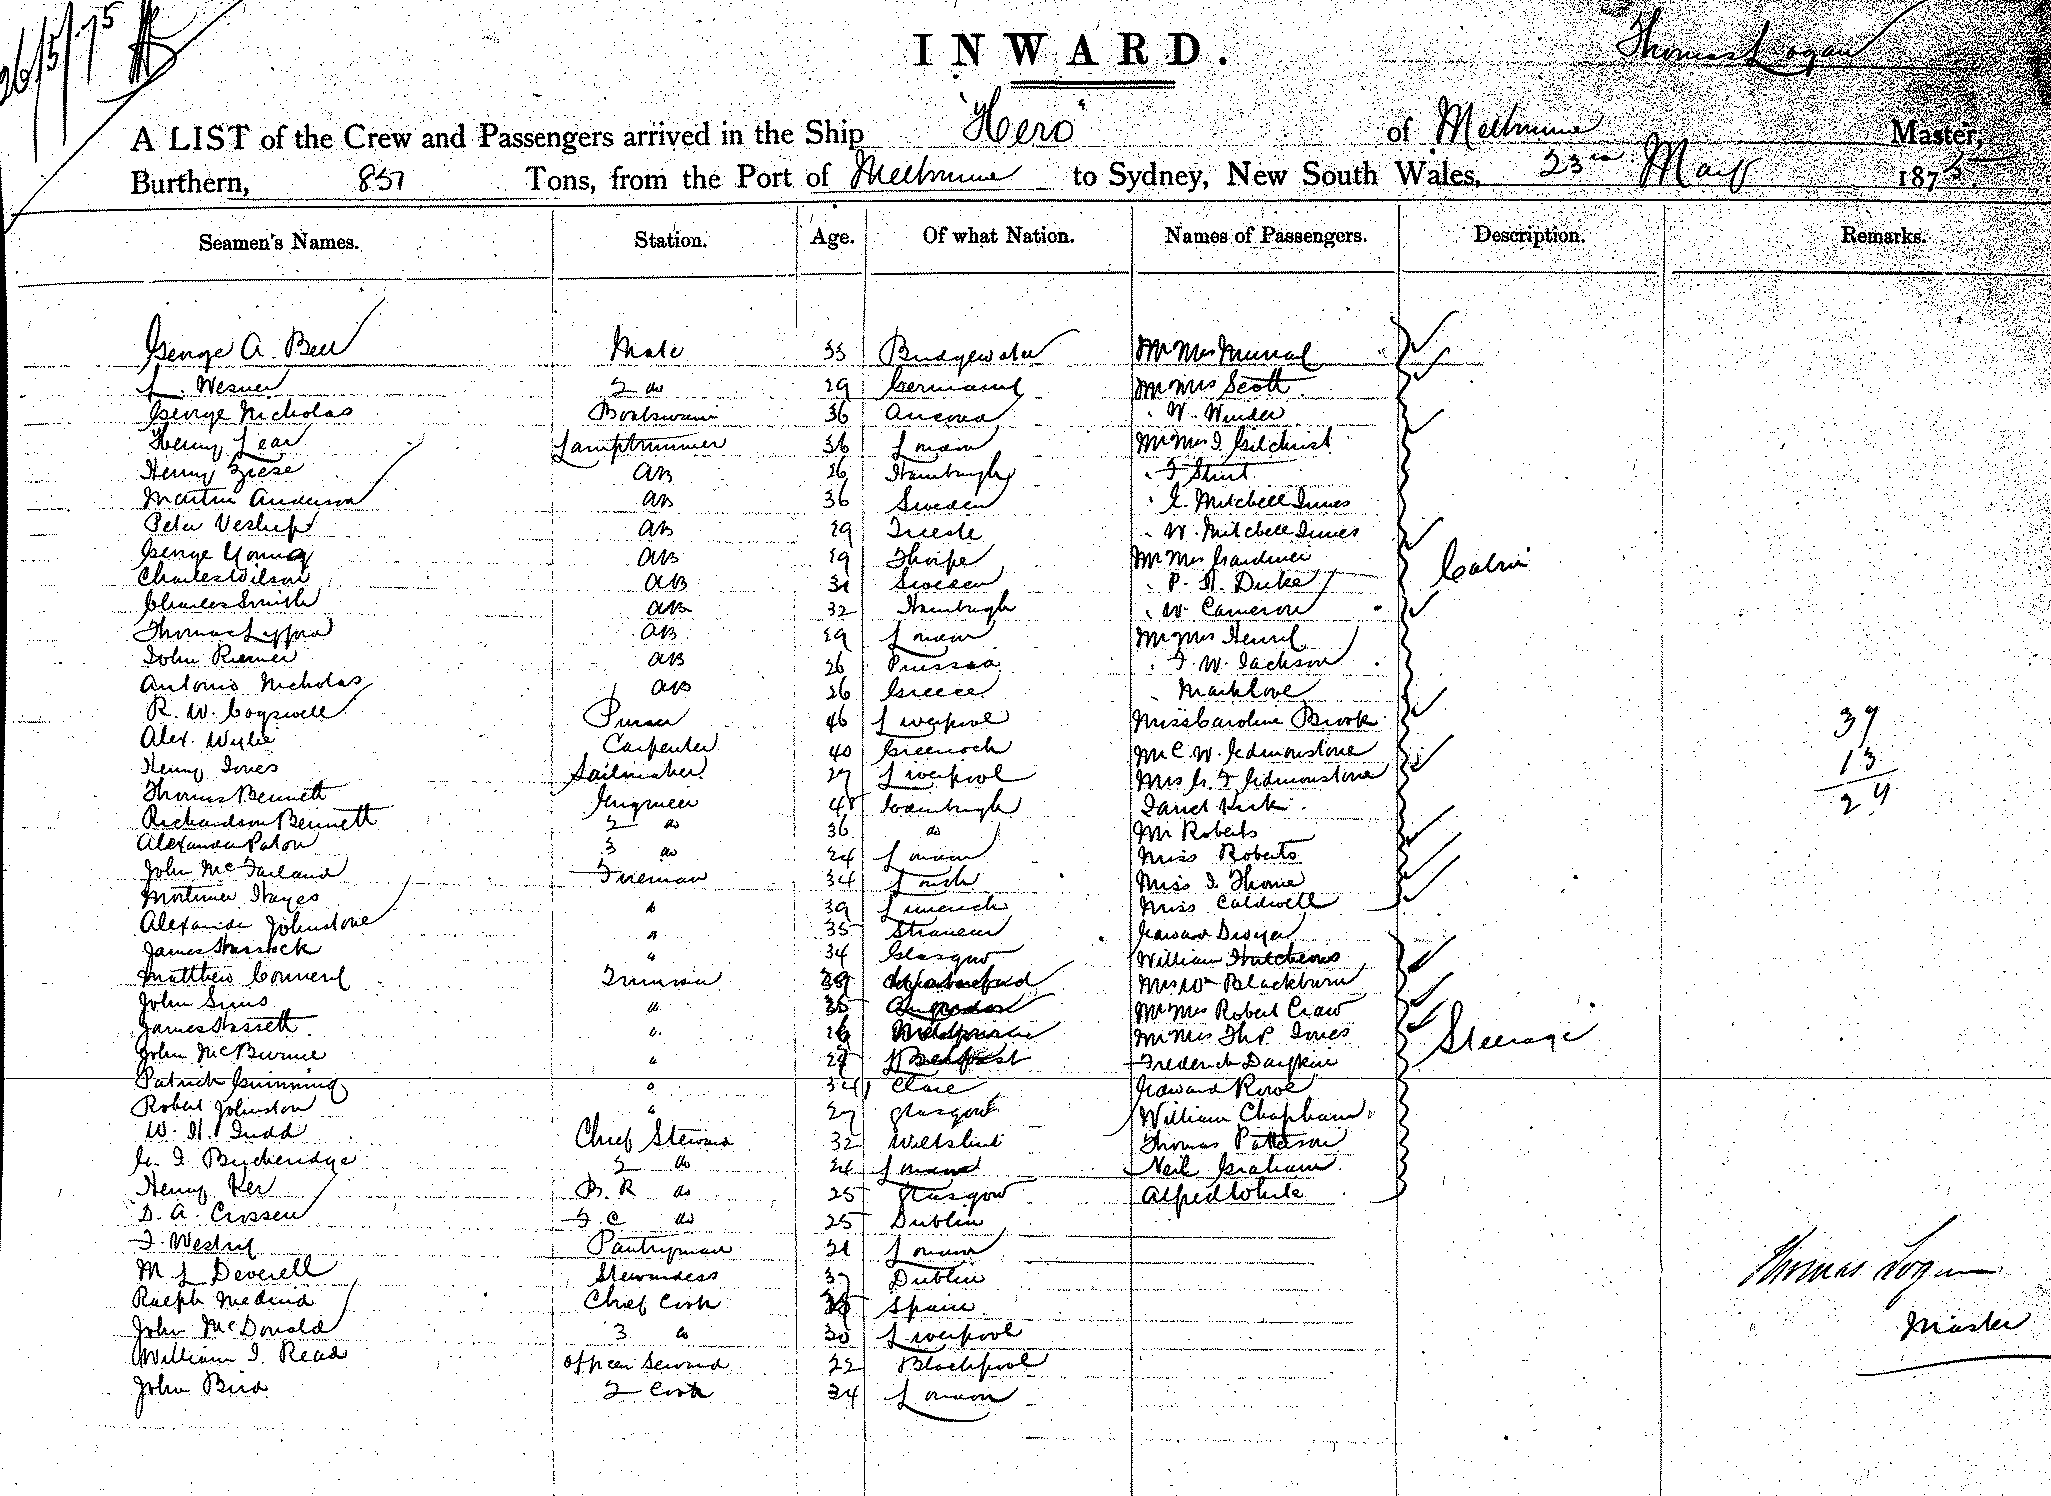 26/5/75
INWARD.
Thomas Logan
A LIST of the Crew and Passengers arrived in the Ship "Hero" of Melbourne Master,
Burthern, Tons, from the Port of Melbourne to Sydney, New South Wales, 23rd May 1875
Seamen's Names. Station. Age. Of what Nation. Names of Passengers. Description. Remarks.
George A. Bell Mate 33 Bridgewater Mr Mrs
L. Wesner 2 do 29 Germany Mr Mrs Scott
George Nicholas Boatswain 36 Ancona " W. Winder
Henry Lear Lamptrimmer 36 London Mr Mrs J. Gilchrist
Henry Giese AB 26 Hamburgh " F
Martin Anderson AB 36 Sweden " Mitchell Innes
Peter AB 29 Trieste " W. Mitchell Innes
George Young AB 29 Thorpe Mr Mrs Gardiner
Charles Wilson AB 31 Sweden " P. H. Duke Cabin
Charles Smith AB 32 Hamburgh " W. Cameron
Thomas AB 29 London Mr Mrs Henry
John Riemer AB 26 Prussia " F. W. Jackson
Antonio Nicholas AB 26 Greece " Mark Love
R. W. Cogswell Purser 46 Liverpool Miss Caroline Brook 37
Alex. Wylie Carpenter 40 Greenock Mr C. W. Edmonstone 13
Henry Jones Sailmaker 27 Liverpool Mrs G. F Edmonstone
Thomas Bennett Engineer 48 Edinburgh Janet Kirk 24
Richardson Bennett 2 do 36 do Mr Roberts
Alexander Paton 3 do 24 London Miss Roberts
John McFarland Fireman 34 Louth Miss J. Thorne
Mortimer Hayes " 39 Limerick Miss Caldwell
Alexander Johnstone " 35 Stranraer Edward
James " 34 Glasgow William Hutchens
Matthew Trimmer 39 Mrs Wm Blackburn
John Sims " 35 Mr Mrs Robert Craw
James Hassett " 26 Mr Mrs Thos Jones Steerage
John McBurnie " 27 Belfast Frederick
Patrick " 34 Clare Edward Rowe
Robert Johnston " 27 Glasgow William Chapham
W. H. Judd Chief Steward 32 Wiltshire Thomas Patterson
G. J. Bucheridge 2 do 24 London Neil Graham
Henry Ker B. R do 25 Glasgow Alfred White
D. A. Crossen F. C do 25 Dublin
J. Pantryman 21 London
M L Deverell Stewardess 37 Dublin
Ralph Medina Chief Cook Spain
John McDonald 3 do 30 Liverpool
William J. Read Officer Steward 22 Blackpool
John Bird 2 Cook 34 London
Thomas Logan
Master